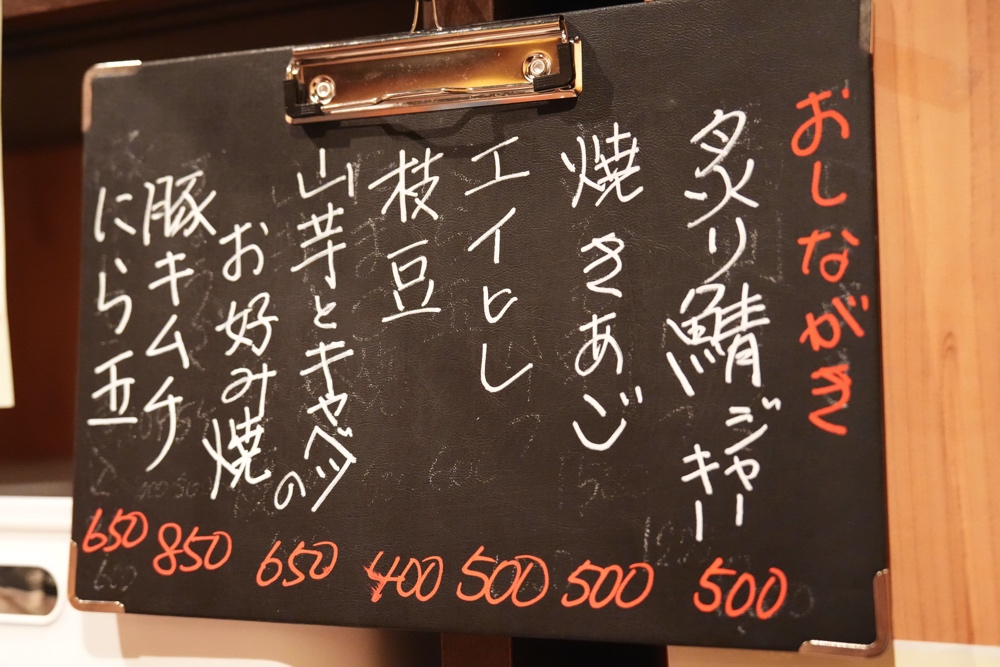 おしながき
炙り鯖ジャー
キー
500
焼きあご
500
エイヒレ
500
枝豆
400
山芋とキャベツの
お好み焼
650
豚キムチ
850
にら玉
650